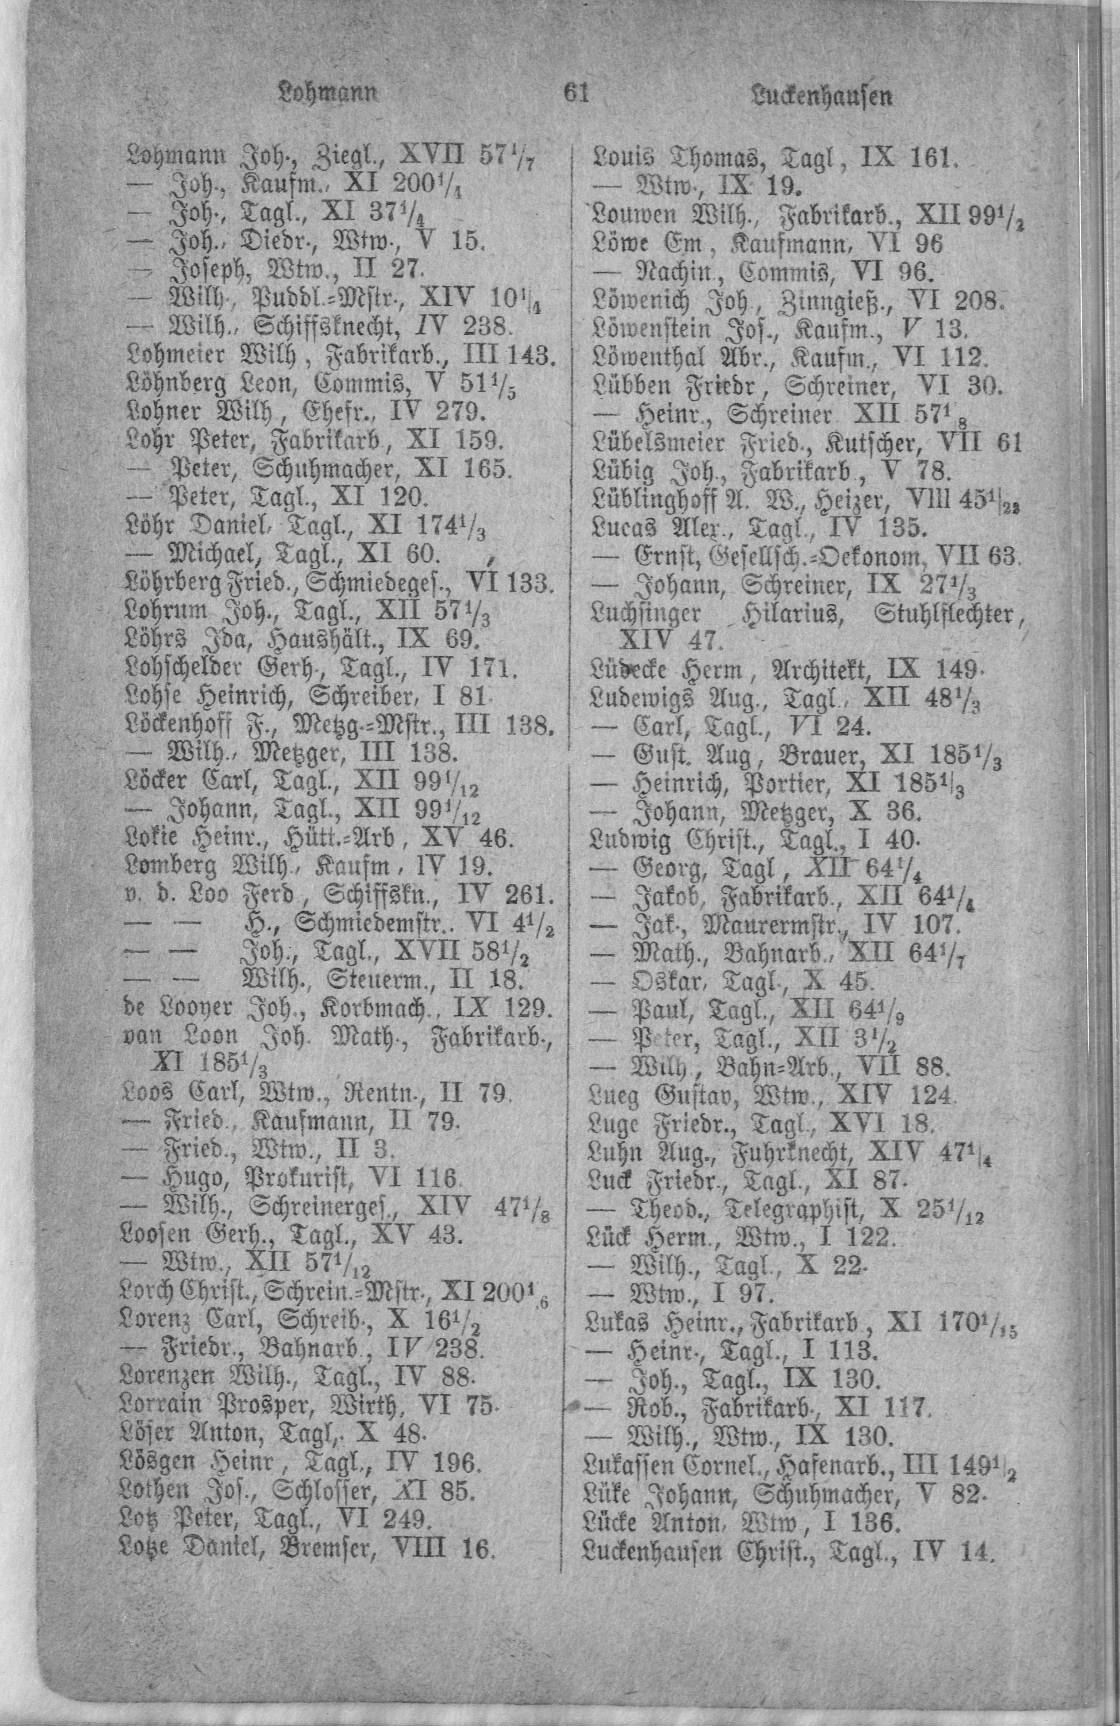 Lohmann 61 Luckenhausen
Lohmann Joh., Ziegl., XVII 57 1/7
— Joh., Kaufm., XI 200 1/4
— Joh., Tagl., XI 37 1/4
— Joh., Diedr., Wtw., V 15.
— Joseph, Wtw., II 27.
— Wilh., Puddl.=Mstr., XIV 10 1/4
— Wilh., Schiffsknecht, IV 238.
Lohmeier Wilh, Fabrikarb., III 143.
Löhnberg Leon, Commis, V 51 1/5
Lohner Wilh, Ehefr., IV 279.
Lohr Peter, Fabrikarb, XI 159.
— Peter, Schuhmacher, XI 165.
— Peter, Tagl., XI 120.
Löhr Daniel, Tagl., XI 174 1/3
— Michael, Tagl., XI 60.
Löhrberg Fried., Schmiedeges., VI 133.
Lohrum Joh., Tagl., XII 57 1/3
Löhrs Ida, Haushält., IX 69.
Lohschelder Gerh., Tagl., IV 171.
Lohse Heinrich, Schreiber, I 81.
Löckenhoff F., Metzg.=Mstr., III 138.
— Wilh., Metzger, III 138.
Löcker Carl, Tagl., XII 99 1/12
— Johann, Tagl., XII 99 1/12
Lokie Heinr., Hütt.=Arb, XV 46.
Lomberg Wilh., Kaufm, IV 19.
v. d. Loo Ferd, Schiffskn., IV 261.
— — H., Schmiedemstr.. VI 4 1/2
— — Joh., Tagl., XVII 58 1/2
— — Wilh., Steuerm., II 18.
de Looyer Joh., Korbmach., IX 129.
van Loon Joh. Math., Fabrikarb.,
XI 185 1/3
Loos Carl, Wtw., Rentn., II 79.
— Fried., Kaufmann, II 79.
— Fried., Wtw., II 3.
— Hugo, Prokurist, VI 116.
— Wilh., Schreinerges., XIV 47 1/8
Loosen Gerh., Tagl., XV 43.
— Wtw., XII 57 1/12
Lorch Christ., Schrein.=Mstr., XI 200 1/6
Lorenz Carl, Schreib., X 16 1/2
— Friedr., Bahnarb., IV 238.
Lorenzen Wilh., Tagl., IV 88.
Lorrain Prosper, Wirth, VI 75.
Löser Anton, Tagl,. X 48.
Lösgen Heinr, Tagl., IV 196.
Lothen Jos., Schlosser, XI 85.
Lotz Peter, Tagl., VI 249.
Lotze Daniel, Bremser, VIII 16.
Louis Thomas, Tagl, IX 161.
— Wtw., IX 19.
Louwen Wilh., Fabrikarb., XII 99 1/2
Löwe Em, Kaufmann, VI 96
— Nachin., Commis, VI 96.
Löwenich Joh, Zinngieß., VI 208.
Löwenstein Jos., Kaufm., V 13.
Löwenthal Abr., Kaufm., VI 112.
Lübben Friedr, Schreiner, VI 30.
— Heinr., Schreiner XII 57 1/8
Lübelsmeier Fried., Kutscher, VII 61
Lübig Joh., Fabrikarb, V 78.
Lüblinghoff A. W., Heizer, VIII 45 1/23
Lucas Alex., Tagl., IV 135.
— Ernst, Gesellsch.=Oekonom, VII 63.
— Johann, Schreiner, IX 27 1/3
Luchsinger Hilarius, Stuhlflechter,
XIV 47.
Lüdecke Herm, Architekt, IX 149.
Ludewigs Aug., Tagl., XII 48 1/3
— Carl, Tagl., VI 24.
— Gust. Aug, Brauer, XI 185 1/3
— Heinrich, Portier, XI 185 1/3
— Johann, Metzger, X 36.
Ludwig Christ., Tagl., I 40.
— Georg, Tagl, XII 64 1/4
— Jakob, Fabrikarb., XII 64 1/4
— Jak., Maurermstr., IV 107.
— Math., Bahnarb., XII 64 1/7
— Oskar, Tagl., X 45.
— Paul, Tagl., XII 64 1/9
— Peter, Tagl., XII 3 1/2
— Wilh., Bahn=Arb., VII 88.
Lueg Gustav, Wtw., XIV 124.
Luge Friedr., Tagl., XVI 18.
Luhn Aug., Fuhrknecht, XIV 47 1/4
Luck Friedr., Tagl., XI 87.
— Theod., Telegraphist, X 25 1/12
Lück Herm., Wtw., I 122.
— Wilh., Tagl., X 22.
— Wtw., I 97.
Lukas Heinr., Fabrikarb, XI 170 1/15
— Heinr., Tagl., I 113.
— Joh., Tagl., IX 130.
— Rob., Fabrikarb., XI 117.
— Wilh., Wtw., IX 130.
Lukassen Cornel., Hafenarb., III 149 1/2
Lüke Johann, Schuhmacher, V 82.
Lücke Anton, Wtw, I 136.
Luckenhausen Christ., Tagl., IV 14.